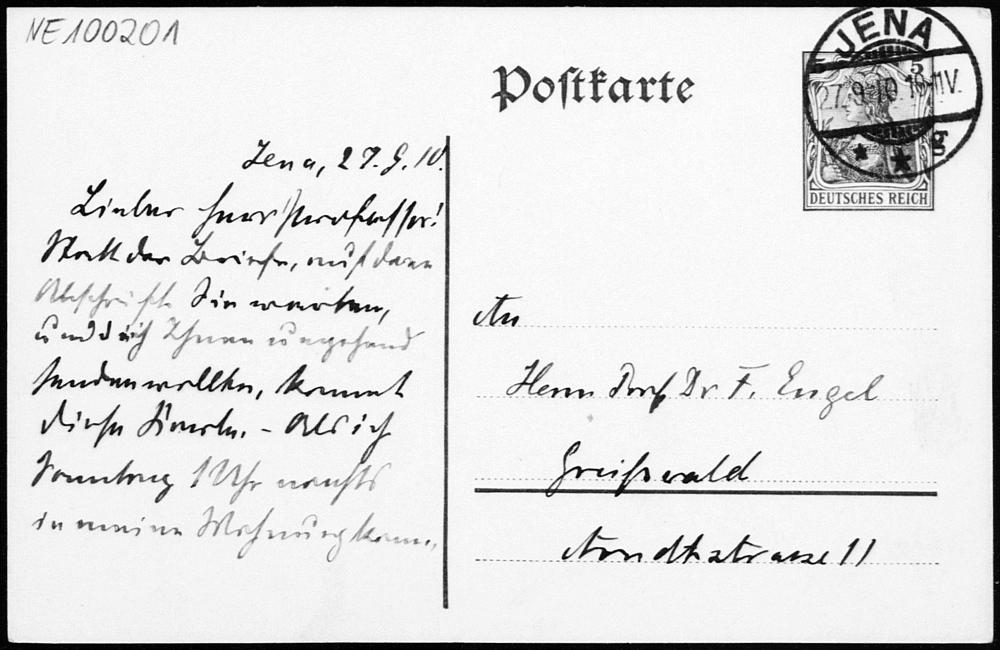 NE100201
Postkarte
JENA
27.9.10 10-11V.
5
DEUTSCHES REICH
Jena, 27.9.10.
Lieber Herr Professor!
Statt der Briefe, auf deren
Abschrift Sie warten,
und die ich Ihnen umgehend
senden wollte, kommt
diese Karte. - Als ich
Sonntag 1 Uhr nachts
in meine Wohnung kam,
An
Herrn Prof Dr F. Engel
Greifswald
Arndtstrasse 11